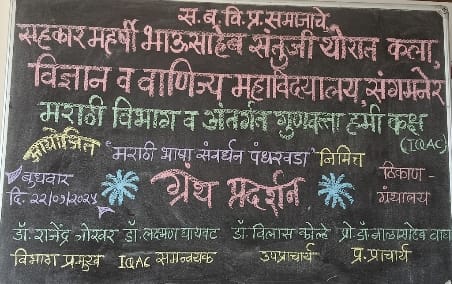 स.ब.वि.प्र.समाजाचे,
सहकार महर्षी भाऊसाहेब संतुजी थोरात कला,
विज्ञान व वाणिज्य महाविद्यालय, संगमनेर
मराठी विभाग व अंतर्गत गुणवत्ता हमी कक्ष
(IQAC)
आयोजित
"मराठी भाषा संवर्धन पंधरवडा" निमित्त
बुधवार
दि. २२/०१/२०२५
ग्रंथ प्रदर्शन
ठिकाण -
ग्रंथालय
डॉ. राजेंद्र डॉ. लक्ष्मण घायवट डॉ. विलास कोल्हे प्रो.डॉ. बाळासाहेब वाघ
विभाग प्रमुख IQAC समन्वयक उपप्राचार्य प्र. प्राचार्य